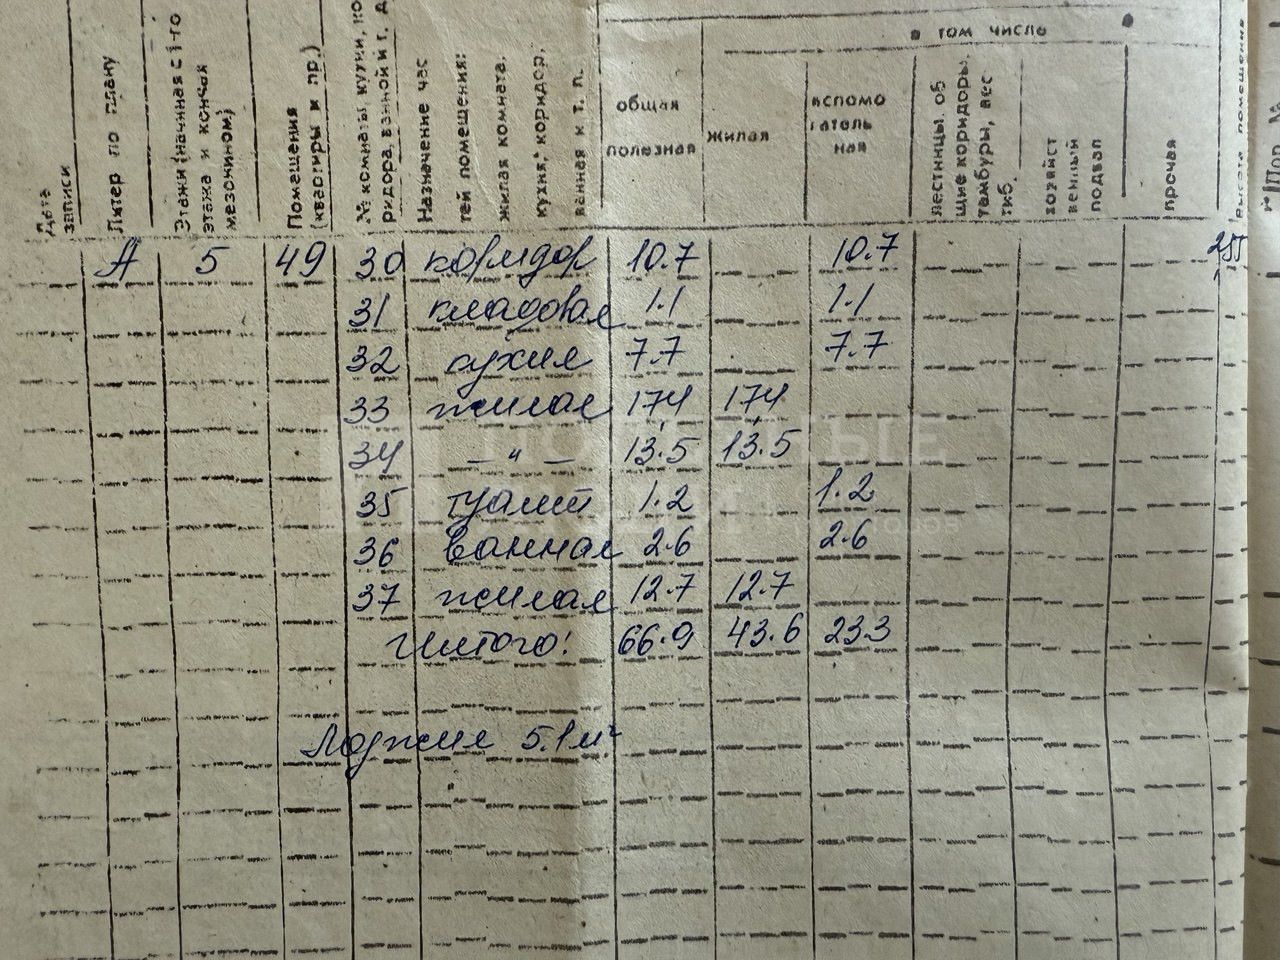 Дата записи
Литер по плану
Этажи (начиная с 1-го этажа и кончая мезонином)
Помещения (квартиры и пр.)
№ комнаты, кухни, ко ридора, ванной и т. д.
Назначение час тей помещения: жилая комната, кухня, коридор, ванная и т. п.
общая полезная
в том числе
жилая
вспомо гатель ная
лестницы, об щие коридоры, тамбуры, вес тиб.
хозяйст венный подвал
прочая
высота помещения
А 5 49 30 коридор 10.7 10.7 255
31 кладовая 1.1 1.1
32 кухня 7.7 7.7
33 жилая 17,4 17,4
34 — " — 13.5 13.5
35 туалет 1.2 1.2
36 ванная 2.6 2.6
37 жилая 12.7 12.7
Итого: 66.9 43.6 23.3
Лоджия 5.1 м²